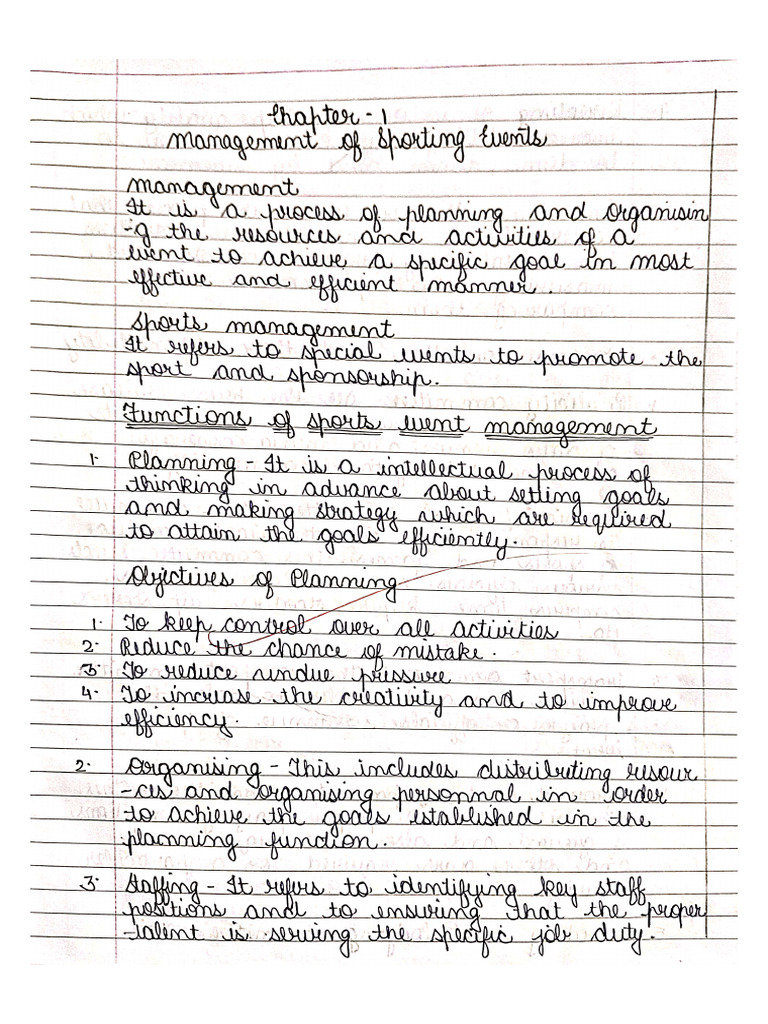 Chapter - 1
Management of Sporting Events
Management
It is a process of planning and organisin
-g the resources and activities of a
event to achieve a specific goal in most
effective and efficient manner.
Sports management
It refers to special events to promote the
sport and sponsorship.
Functions of sports event management
1. Planning - It is a intellectual process of
thinking in advance about setting goals
and making strategy which are required
to attain the goals efficiently.
Objectives of Planning
1. To keep control over all activities
2. Reduce the chance of mistake.
3. To reduce undue pressure
4. To increase the creativity and to improve
efficiency.
2. Organising - This includes distributing resour
-ces and organising personnal in order
to achieve the goals established in the
planning function.
3. Staffing - It refers to identifying key staff
positions and to ensuring that the proper
talent is serving the specific job duty.